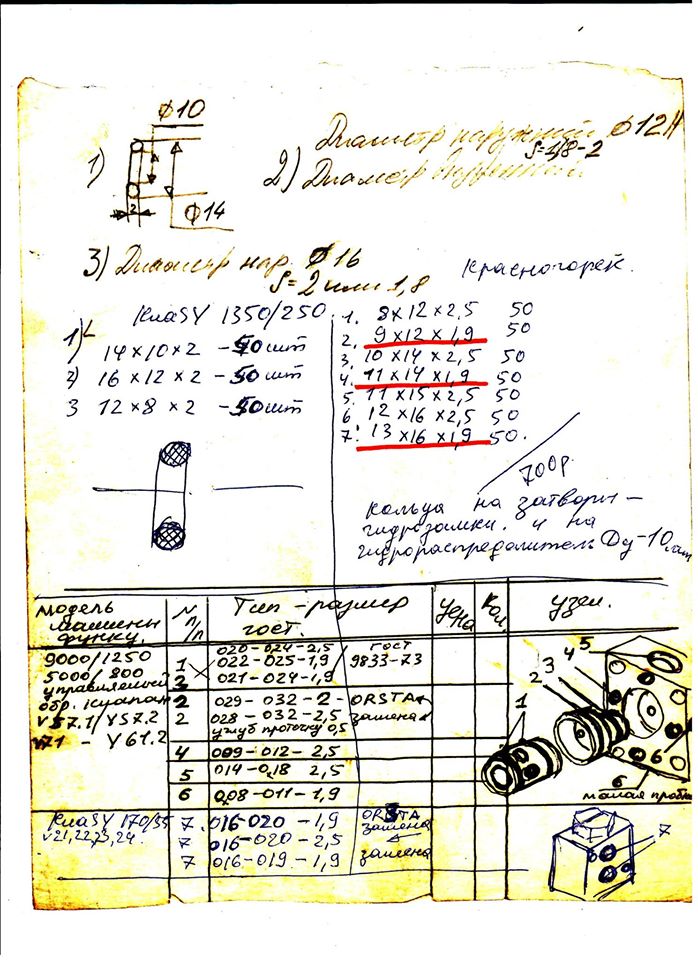 Ø10
1)
2
Ø14
Диаметр наружний Ø12
S=1,8-2
2) Диаметр
3) Диаметр нар. Ø16
S=2 или 1,8
Красногорск.
КuaSY 1350/250
1) 14×10×2 - 50 шт
2) 16×12×2 - 50 шт
3 12×8×2 - 50 шт
1. 8×12×2,5 50
2. 9×12×1,9 50
3. 10×14×2,5 50
4. 11×14×1,9 50
5. 11×15×2,5 50
6 12×16×2,5 50
7. 13×16×1,9 50.
700р.
Кольца на затворы-
гидрозамки. и на
гидрораспределитель Dy-10
модель машины функц.
N п/п
Тип-размер гост.
Цена
Кол.
узел.
9000/1250
5000/800
управляемый
обр. клапан
V57.1/V57.2
V71 - V61.2
020-024-2,5
1 022-025-1,9
3 021-024-1,9
гост
9833-73
2 029-032-2 ORSTA
2 028-032-2,5 замена
углуб проточку 0,5
4 009-012-2,5
5 014-018 2,5
6 008-011-1,9
КuaSY 170/55
V21,22,23,24.
7. 016-020-1,9 ORSTA
замена
7 016-020-2,5
7 016-019-1,9 замена
1
2 3 4 5
6
6
малая пробка
7